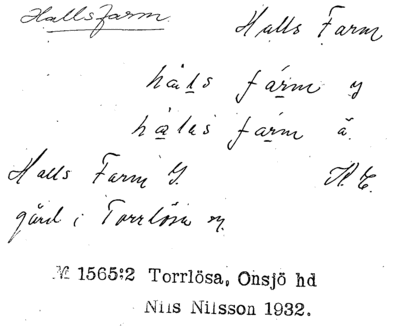 Hallsfarm. Halls Farm
håls fárm y
hålas fárm ä.
Halls Farm
gård i Torrlösa sn.
№ 1565:2 Torrlösa, Onsjö hd
Nils Nilsson 1932.